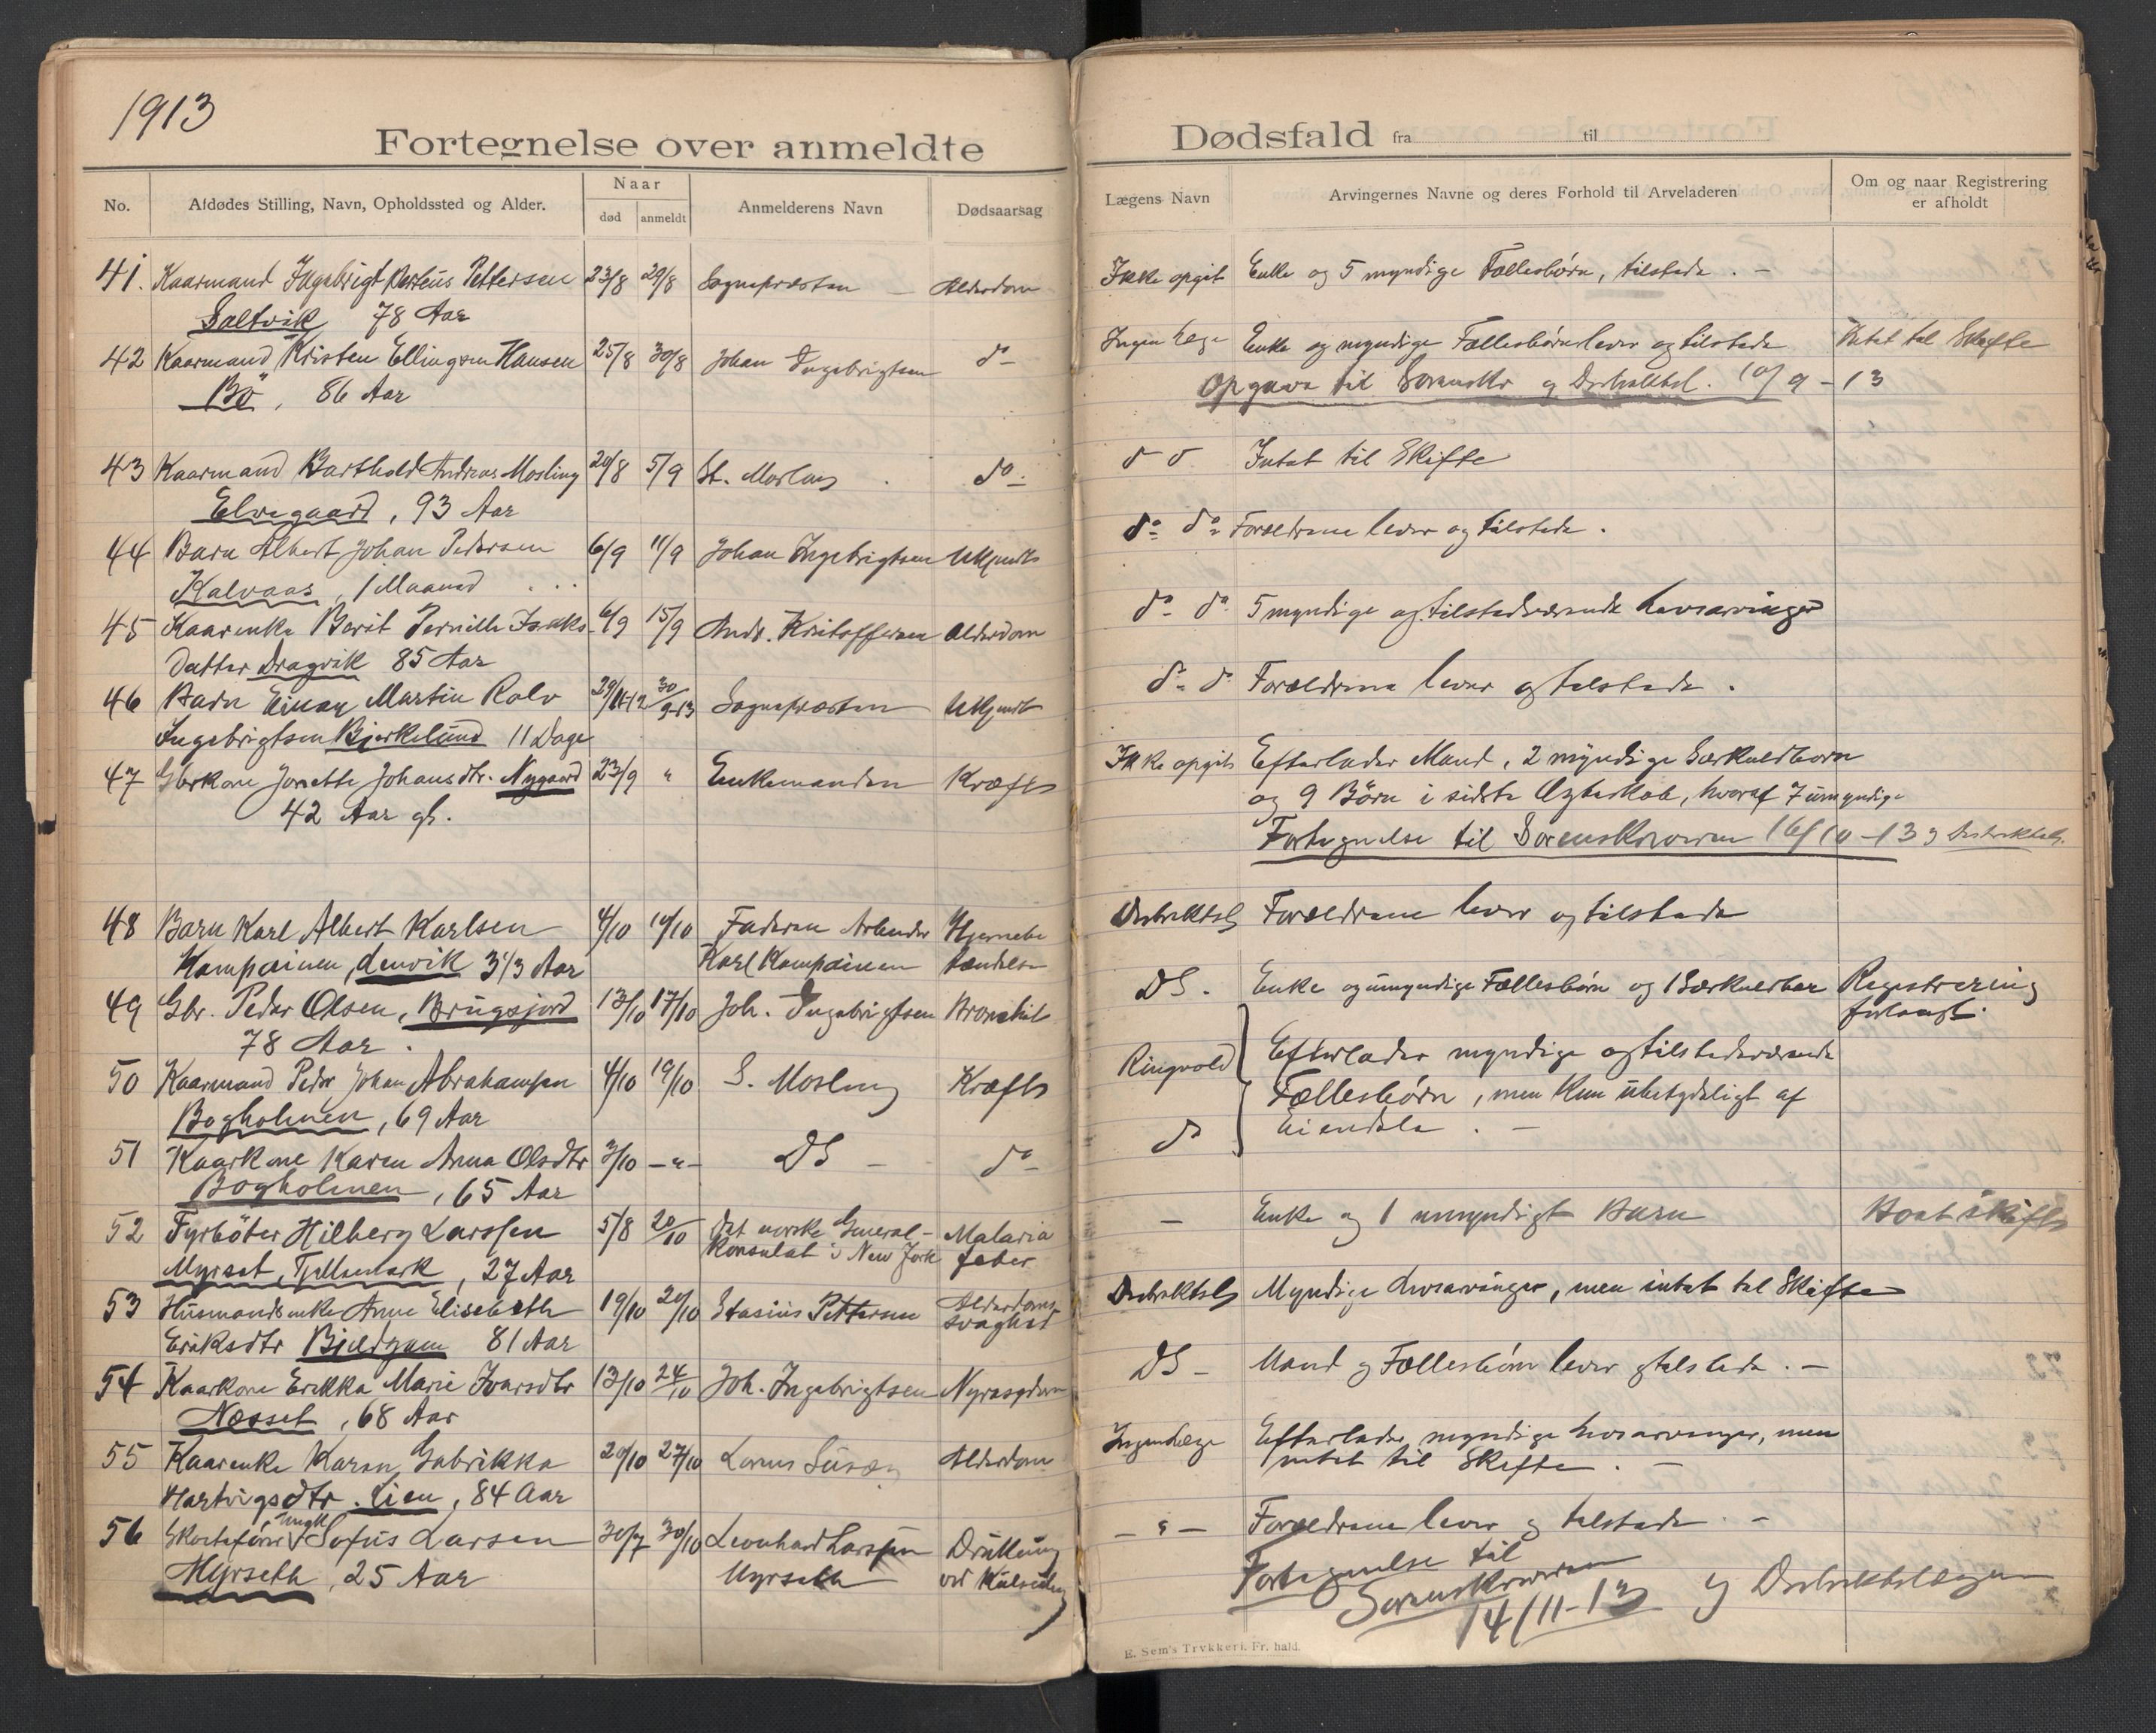 1913
Fortegnelse over anmeldte
Dødsfald fra til
No.
Afdødes Stilling, Navn, Opholdssted og Alder.
Naar
død
anmeldt
Anmelderens Navn
Dødsaarsag
Lægens Navn
Arvingernes Navne og deres Forhold til Arveladeren
Om og naar Registrering
er afholdt
41. Kaarmand Ingebrigt Petersen 23/8 29/8 Sognepræsten Alderdom Ikke opgit Enke og 5 myndige Fællesbørn, tilstede. -
Saltvik 78 Aar
42 Kaarmand Kristen Ellingsen Hansen 25/8 30/8 Johan Ingebrigtsen do Ingen Læge Enke og myndige Fællesbørn lever og tilstede Intet til Skifte
Bö, 86 Aar
Opgave til Sorenskr og Distriktsl. 10/9-13
43 Kaarmand Barthold Andreas Mosling 20/8 5/9 do Intet til Skifte
Elvegaard, 93 Aar
44 Barn Albert Johan Pedersen 6/9 11/9 Johan Ingebrigtsen Ukjendt do do Forældrene lever og tilstede.
Kalvaas, 1 Maaned
45 Kaarenke Berit Pernille Isaks- 6/9 15/9 Andr. Kristoffersen Alderdom do do 5 myndige og tilstedeværende Livsarvinger
datter Dragvik 85 Aar
46 Barn Einar Martin Rolv 29/11-12 30/9-13 Sognepræsten Ukjendt do do Forældrene lever og tilstede.
Ingebrigtsen Bjerkelund 11 Dage
47 Gbrkone Jonette Johansdtr. Nygaard 23/9 " Enkemanden Kræft Ikke opgit Efterlader Mand, 2 myndige Særkuldborn
42 Aar gl.
og 9 Börn i sidste Ægteskab, hvoraf 7 umyndige
Fortegnelse til Sorenskriveren 16/10-13 og Distriktsl.
48 Barn Karl Albert Karlsen 4/10 14/10 Faderen Arbeider Hjernebe Distriktsl Forældrene lever og tilstede
Kompainen, Lenvik 3 1/3 Aar Karl Kompainen tændelse
49 Gbr. Peder Olsen, Brugsjord 13/10 17/10 Joh. Ingebrigtsen Bronchit DS. Enke og umyndige Fællesbörn og 1 Særkuldbar Registrering
78 Aar.
forlangt.
50 Kaarmand Peder Johan Abrahamsen 4/10 19/10 S. Mosling Kræft Ringvold Efterlader myndige og tilstedeværende
Bogholmen, 69 Aar
Fællesbörn, men kun ubetydeligt af
51 Kaarkone Karen Anna Olsdtr 3/10 -"- DS - do do Eiendele. -
Bogholmen, 65 Aar
52 Fyrböter Hilberg Larssen 5/8 20/10 Det norske General- Malaria - Enke og 1 umyndigt Barn Boet skifte
Myrset, Tjellemark, 27 Aar Konsulat i New York feber
53 Husmandsenke Anne Elisebeth 19/10 20/10 Stasius Pettersen Alderdoms- Distriktsl Myndige Livsarvinger, men intet til Skifte
Eriksdtr Bjeldgam 81 Aar svaghed
54 Kaarkone Erikka Marie Ivarsdtr 13/10 24/10 Joh. Ingebrigtsen Nyresygdom DS - Mand og Fællesbörn lever og tilstede. -
Næsset, 68 Aar
55 Kaarenke Karen Gabrikka 20/10 27/10 Alderdom Ingen Læge Efterlader myndige Livsarvinger, men
Hartvigsdtr. Lien, 84 Aar
intet til Skifte. -
56 ungk. Sofus Larsen 30/7 30/10 Leonhard Larssen Drukning - " - Forældrene lever og tilstede. -
Myrseth, 25 Aar Myrseth ved
Fortegnelse til
Sorenskriveren
14/11-13 og Distriktslægen
E. Sem's Trykkeri, Fr.hald.